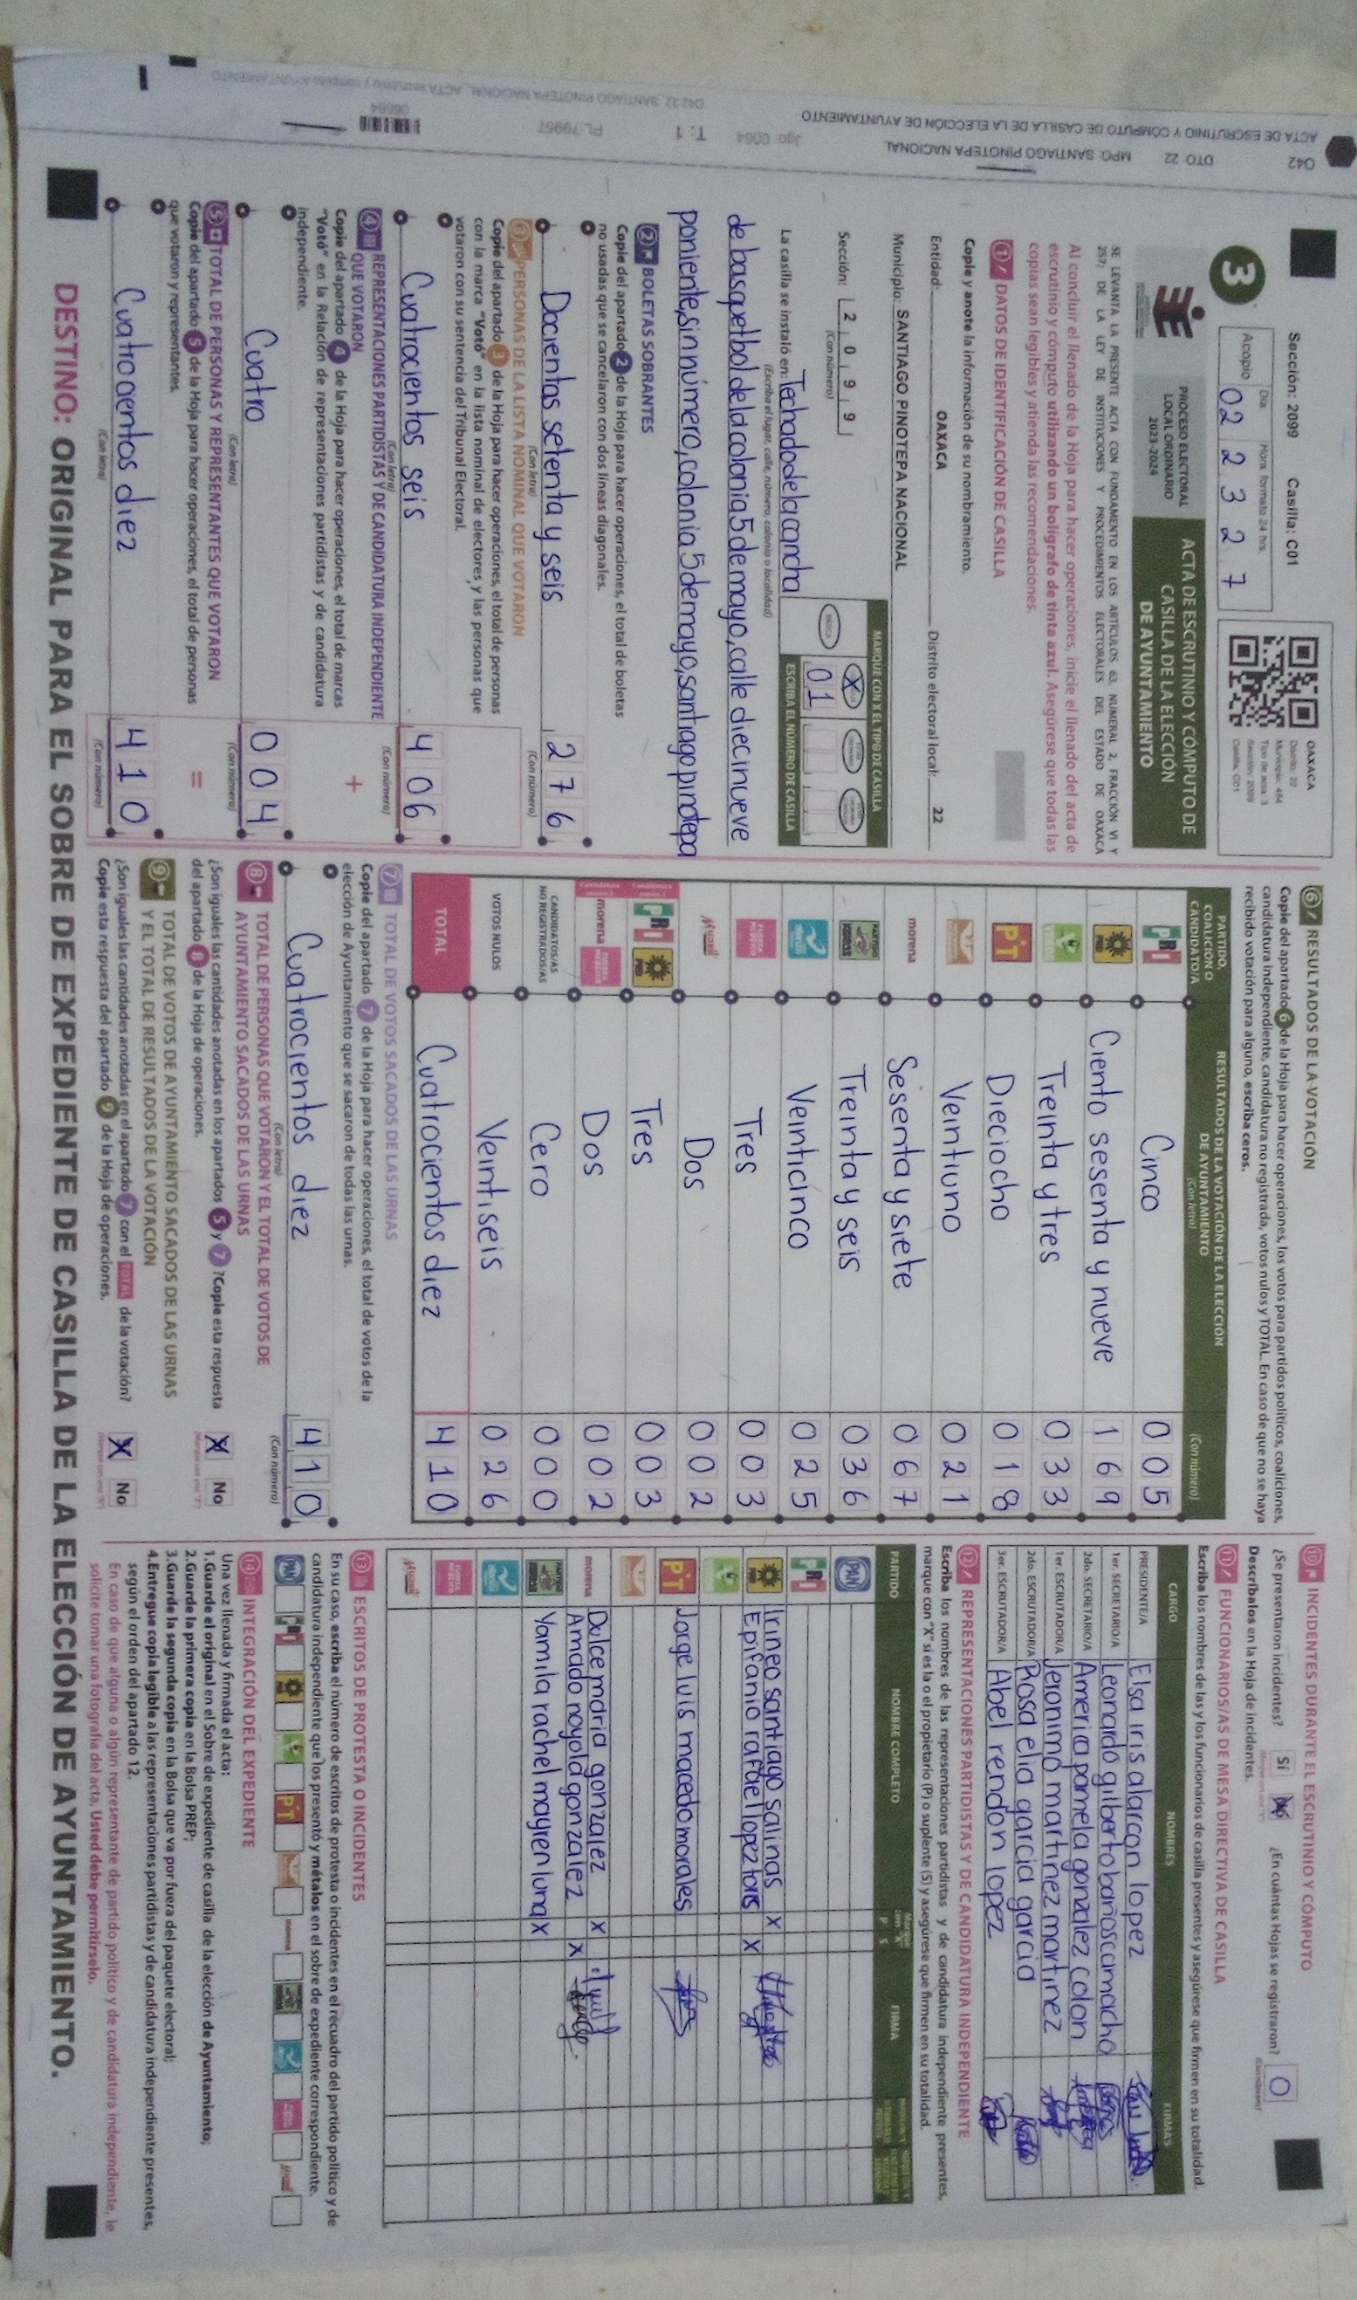 ACTA DE ESCRUTINIO Y CÓMPUTO DE CASILLA DE LA ELECCIÓN DE AYUNTAMIENTO
042 DTO: 22 MPO: SANTIAGO PINOTEPA NACIONAL
T: 1
Sección: 2099 Casilla: C01
3
Acopio
Día
Hora, formato 24 hrs.
02 23 27
OAXACA
Distrito: 22
Casilla: C01
PROCESO ELECTORAL
LOCAL ORDINARIO
2023-2024
ACTA DE ESCRUTINIO Y CÓMPUTO DE
CASILLA DE LA ELECCIÓN
DE AYUNTAMIENTO
SE LEVANTA LA PRESENTE ACTA CON FUNDAMENTO EN LOS ARTÍCULOS 63, NUMERAL 2, FRACCIÓN VI Y
257; DE LA LEY DE INSTITUCIONES Y PROCEDIMIENTOS ELECTORALES DEL ESTADO DE OAXACA
Al concluir el llenado de la Hoja para hacer operaciones, inicie el llenado del acta de
escrutinio y cómputo utilizando un bolígrafo de tinta azul. Asegúrese que todas las
copias sean legibles y atienda las recomendaciones.
1 DATOS DE IDENTIFICACIÓN DE CASILLA
Copie y anote la información de su nombramiento.
Entidad: OAXACA Distrito electoral local: 22
Municipio: SANTIAGO PINOTEPA NACIONAL
Sección: 2 0 9 9
(Con número)
MARQUE CON X EL TIPO DE CASILLA
X
ESCRIBA EL NÚMERO DE CASILLA
01
La casilla se instaló en: Techado de la cancha
(Escriba el lugar, calle, número, colonia o localidad)
de basqpetbol de la colonia 5 de mayo, calle diecinueve
poniente, sin número, colonia 5 de mayo, santiago pinotepa
2 BOLETAS SOBRANTES
Copie del apartado 2 de la Hoja para hacer operaciones, el total de boletas
no usadas que se cancelaron con dos líneas diagonales.
Docientas setenta y seis 276
(Con letra) (Con número)
3 PERSONAS DE LA LISTA NOMINAL QUE VOTARON
Copie del apartado 3 de la Hoja para hacer operaciones, el total de personas
con la marca "Votó" en la lista nominal de electores y las personas que
votaron con su sentencia del Tribunal Electoral.
Cuatrocientos seis 406
(Con letra) (Con número)
4 REPRESENTACIONES PARTIDISTAS Y DE CANDIDATURA INDEPENDIENTE
QUE VOTARON
+
Copie del apartado 4 de la Hoja para hacer operaciones, el total de marcas
"Votó" en la Relación de representaciones partidistas y de candidatura
independiente.
Cuatro 004
(Con letra) (Con número)
5 TOTAL DE PERSONAS Y REPRESENTANTES QUE VOTARON
=
Copie del apartado 5 de la Hoja para hacer operaciones, el total de personas
que votaron y representantes.
Cuatrocientos diez 410
(Con letra) (Con número)
6 RESULTADOS DE LA VOTACIÓN
Copie del apartado 6 de la Hoja para hacer operaciones, los votos para partidos políticos, coaliciones,
candidatura independiente, candidatura no registrada, votos nulos y TOTAL. En caso de que no se haya
recibido votación para alguno, escriba ceros.
PARTIDO,
COALICIÓN O
CANDIDATO/A
RESULTADOS DE LA VOTACIÓN DE LA ELECCIÓN
DE AYUNTAMIENTO
(Con letra)
(Con número)
PRI Cinco 005
PRD Ciento sesenta y nueve 169
Treinta y tres 033
PT Dieciocho 018
Veintiuno 021
morena Sesenta y siete 067
Treinta y seis 036
Veinticinco 025
Tres 003
Dos 002
PRI PRD Tres 003
morena Dos 002
CANDIDATOS/AS
NO REGISTRADOS/AS
Cero 000
VOTOS NULOS Veintiseis 026
TOTAL Cuatrocientos diez 410
7 TOTAL DE VOTOS SACADOS DE LAS URNAS
Copie del apartado 7 de la Hoja para hacer operaciones, el total de votos de la
elección de Ayuntamiento que se sacaron de todas las urnas.
Cuatrocientos diez 410
(Con letra) (Con número)
8 TOTAL DE PERSONAS QUE VOTARON Y EL TOTAL DE VOTOS DE
AYUNTAMIENTO SACADOS DE LAS URNAS
¿Son iguales las cantidades anotadas en los apartados 5 y 7? Copie esta respuesta
del apartado 8 de la Hoja de operaciones.
X No
9 TOTAL DE VOTOS DE AYUNTAMIENTO SACADOS DE LAS URNAS
Y EL TOTAL DE RESULTADOS DE LA VOTACIÓN
¿Son iguales las cantidades anotadas en el apartado 7 con el TOTAL de la votación?
Copie esta respuesta del apartado 9 de la Hoja de operaciones.
X No
10 INCIDENTES DURANTE EL ESCRUTINIO Y CÓMPUTO
¿Se presentaron incidentes? Sí ¿En cuántas Hojas se registraron? 0
Descríbalos en la Hoja de incidentes.
11 FUNCIONARIOS/AS DE MESA DIRECTIVA DE CASILLA
Escriba los nombres de las y los funcionarios de casilla presentes y asegúrese que firmen en su totalidad.
CARGO NOMBRES FIRMAS
PRESIDENTE/A Elsa iris alarcon lopez
1er. SECRETARIO/A Leonardo gilberto baños camacho
2do. SECRETARIO/A America pamela gonzalez colon
1er. ESCRUTADOR/A Jeronimo martinez martinez
2do. ESCRUTADOR/A Rosa elia garcia garcia
3er. ESCRUTADOR/A Abel rendon lopez
12 REPRESENTACIONES PARTIDISTAS Y DE CANDIDATURA INDEPENDIENTE
Escriba los nombres de las representaciones partidistas y de candidatura independiente presentes,
marque con "X" si es la o el propietario (P) o suplente (S) y asegúrese que firmen en su totalidad.
PARTIDO NOMBRE COMPLETO P S FIRMA
PAN
PRI
PRD Irineo santiago salinas X
Epifanio rafael lopez toris X
PT Jorge luis macedo morales
morena Dulce maria gonzalez X
Amado noyola gonzalez X
Yamila rachel mayren luna X
13 ESCRITOS DE PROTESTA O INCIDENTES
En su caso, escriba el número de escritos de protesta o incidentes en el recuadro del partido político y de
candidatura independiente que los presentó y métalos en el sobre de expediente correspondiente.
PAN PRI PT
14 INTEGRACIÓN DEL EXPEDIENTE
Una vez llenada y firmada el acta:
1.Guarde el original en el Sobre de expediente de casilla de la elección de Ayuntamiento;
2.Guarde la primera copia en la Bolsa PREP;
3.Guarde la segunda copia en la Bolsa que va por fuera del paquete electoral;
4.Entregue copia legible a las representaciones partidistas y de candidatura independiente presentes,
según el orden del apartado 12.
En caso de que alguna o algún representante de partido político y de candidatura independiente, le
solicite tomar una fotografía del acta, Usted debe permitírselo.
DESTINO: ORIGINAL PARA EL SOBRE DE EXPEDIENTE DE CASILLA DE LA ELECCIÓN DE AYUNTAMIENTO.